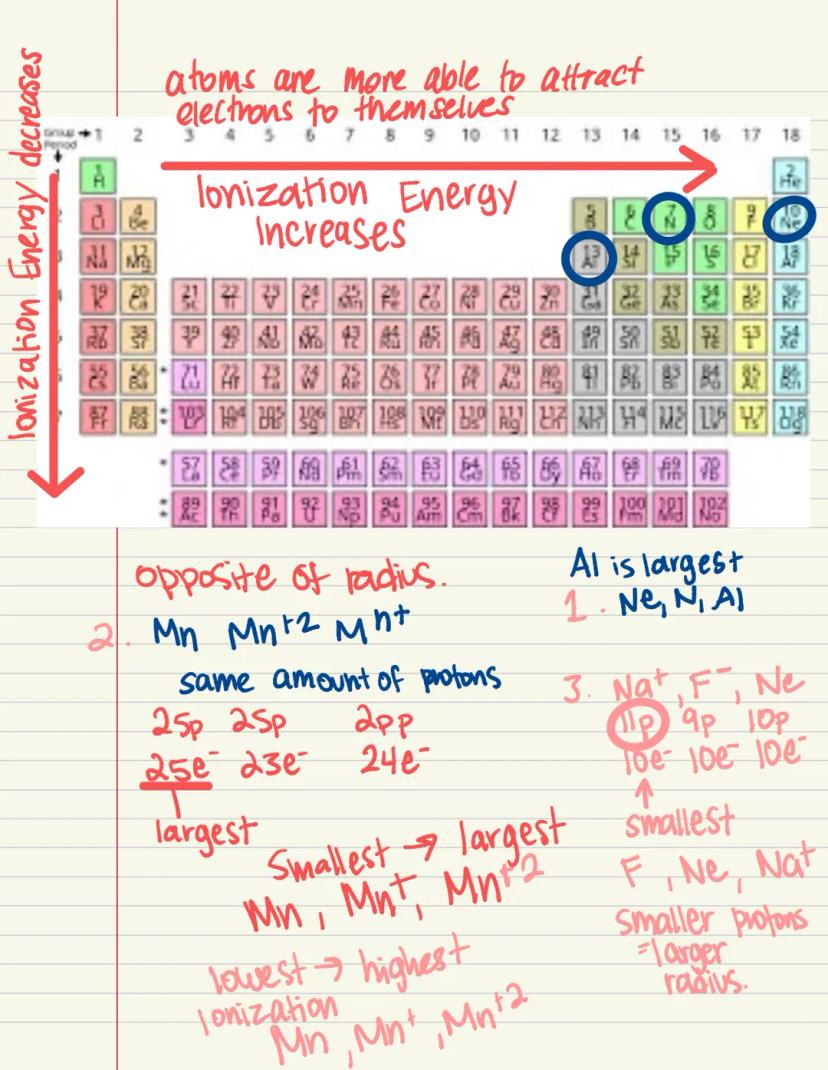 atoms are more able to attract
electrons to themselves
Ionization Energy decreases
Group → 1 2 3 4 5 6 7 8 9 10 11 12 13 14 15 16 17 18
Period
1 H 2 He
Ionization Energy
Increases
3 Li 4 Be 5 B 6 C 7 N 8 O 9 F 10 Ne
11 Na 12 Mg 13 Al 14 Si 15 P 16 S 17 Cl 18 Ar
19 K 20 Ca 21 Sc 22 Ti 23 V 24 Cr 25 Mn 26 Fe 27 Co 28 Ni 29 Cu 30 Zn 31 Ga 32 Ge 33 As 34 Se 35 Br 36 Kr
37 Rb 38 Sr 39 Y 40 Zr 41 Nb 42 Mo 43 Tc 44 Ru 45 Rh 46 Pd 47 Ag 48 Cd 49 In 50 Sn 51 Sb 52 Te 53 I 54 Xe
55 Cs 56 Ba * 71 Lu 72 Hf 73 Ta 74 W 75 Re 76 Os 77 Ir 78 Pt 79 Au 80 Hg 81 Tl 82 Pb 83 Bi 84 Po 85 At 86 Rn
87 Fr 88 Ra ** 103 Lr 104 Rf 105 Db 106 Sg 107 Bh 108 Hs 109 Mt 110 Ds 111 Rg 112 Cn 113 Nh 114 Fl 115 Mc 116 Lv 117 Ts 118 Og
* 57 La 58 Ce 59 Pr 60 Nd 61 Pm 62 Sm 63 Eu 64 Gd 65 Tb 66 Dy 67 Ho 68 Er 69 Tm 70 Yb
** 89 Ac 90 Th 91 Pa 92 U 93 Np 94 Pu 95 Am 96 Cm 97 Bk 98 Cf 99 Es 100 Fm 101 Md 102 No
opposite of radius.
Al is largest
1. Ne, N, Al
2. Mn Mn+2 Mn+
same amount of protons
25p 25p 2pp
25e- 23e- 24e-
largest
Smallest → largest
Mn, Mn+, Mn+2
lowest → highest
Ionization
Mn, Mn+, Mn+2
3. Na+, F-, Ne
11p 9p 10p
10e- 10e- 10e-
smallest
F, Ne, Na+
smaller protons
=larger
radius.